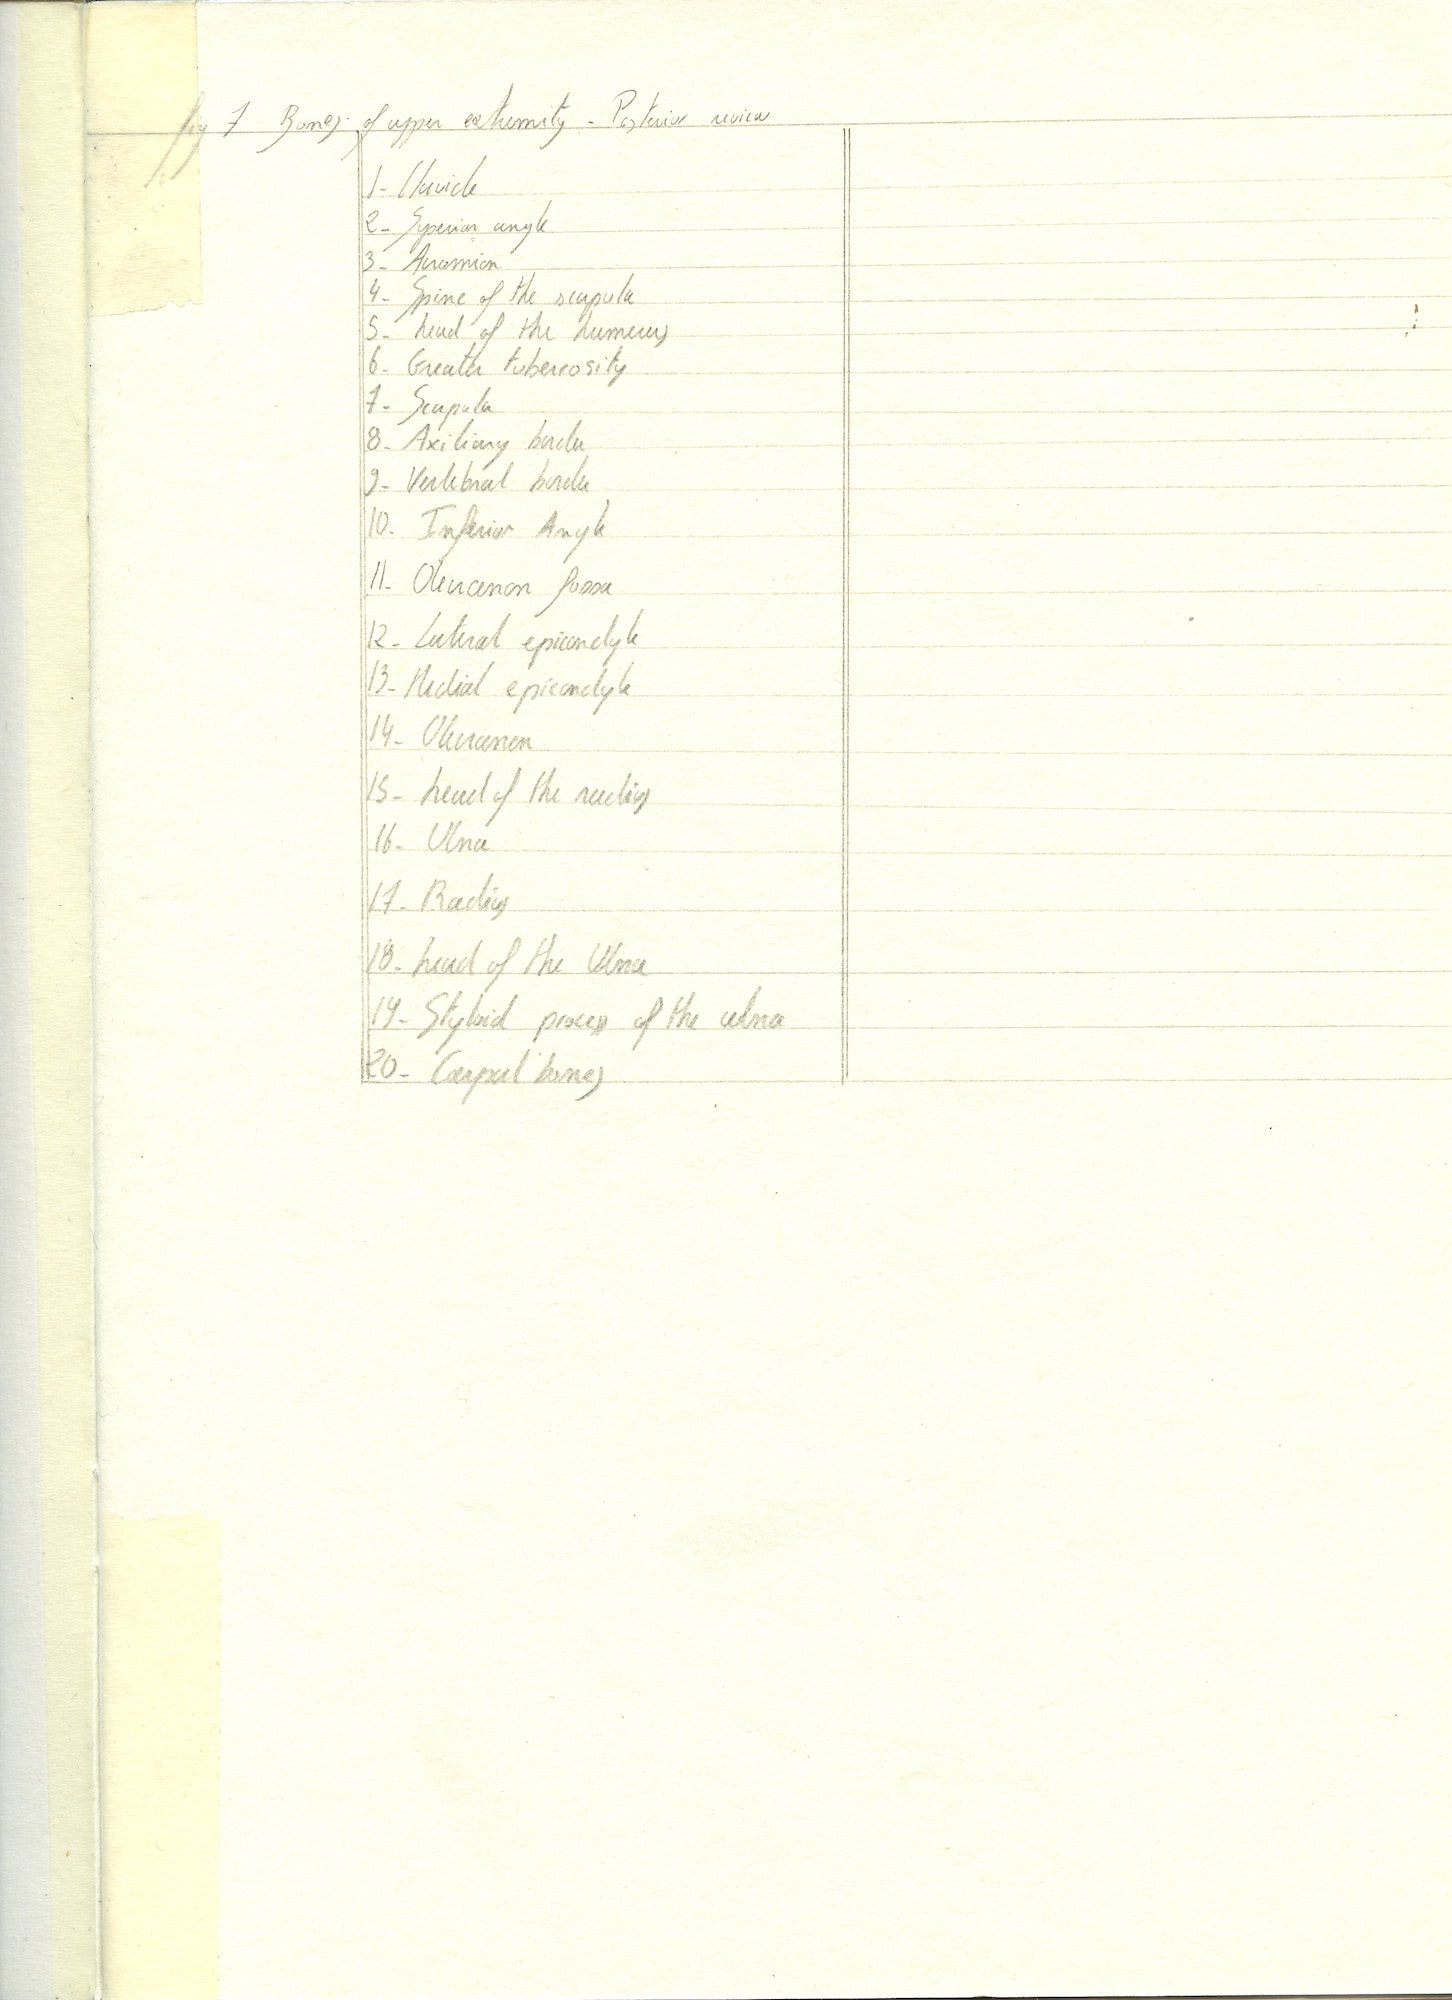 fig 7 Bones of upper extremity - Posterior review
1- Clavicle
2- Superior angle
3- Acromion
4- Spine of the scapula
5- head of the humerus
6- Greater tubercosity
7- Scapula
8- Axiliary border
9- Vertebral border
10- Inferior Angle
11- Olecranon fossa
12- Lateral epicondyle
13- Medial epicondyle
14- Olecranon
15- head of the radius
16- Ulna
17- Radius
18- head of the Ulna
19- Styloid process of the ulna
20- Carpal bones